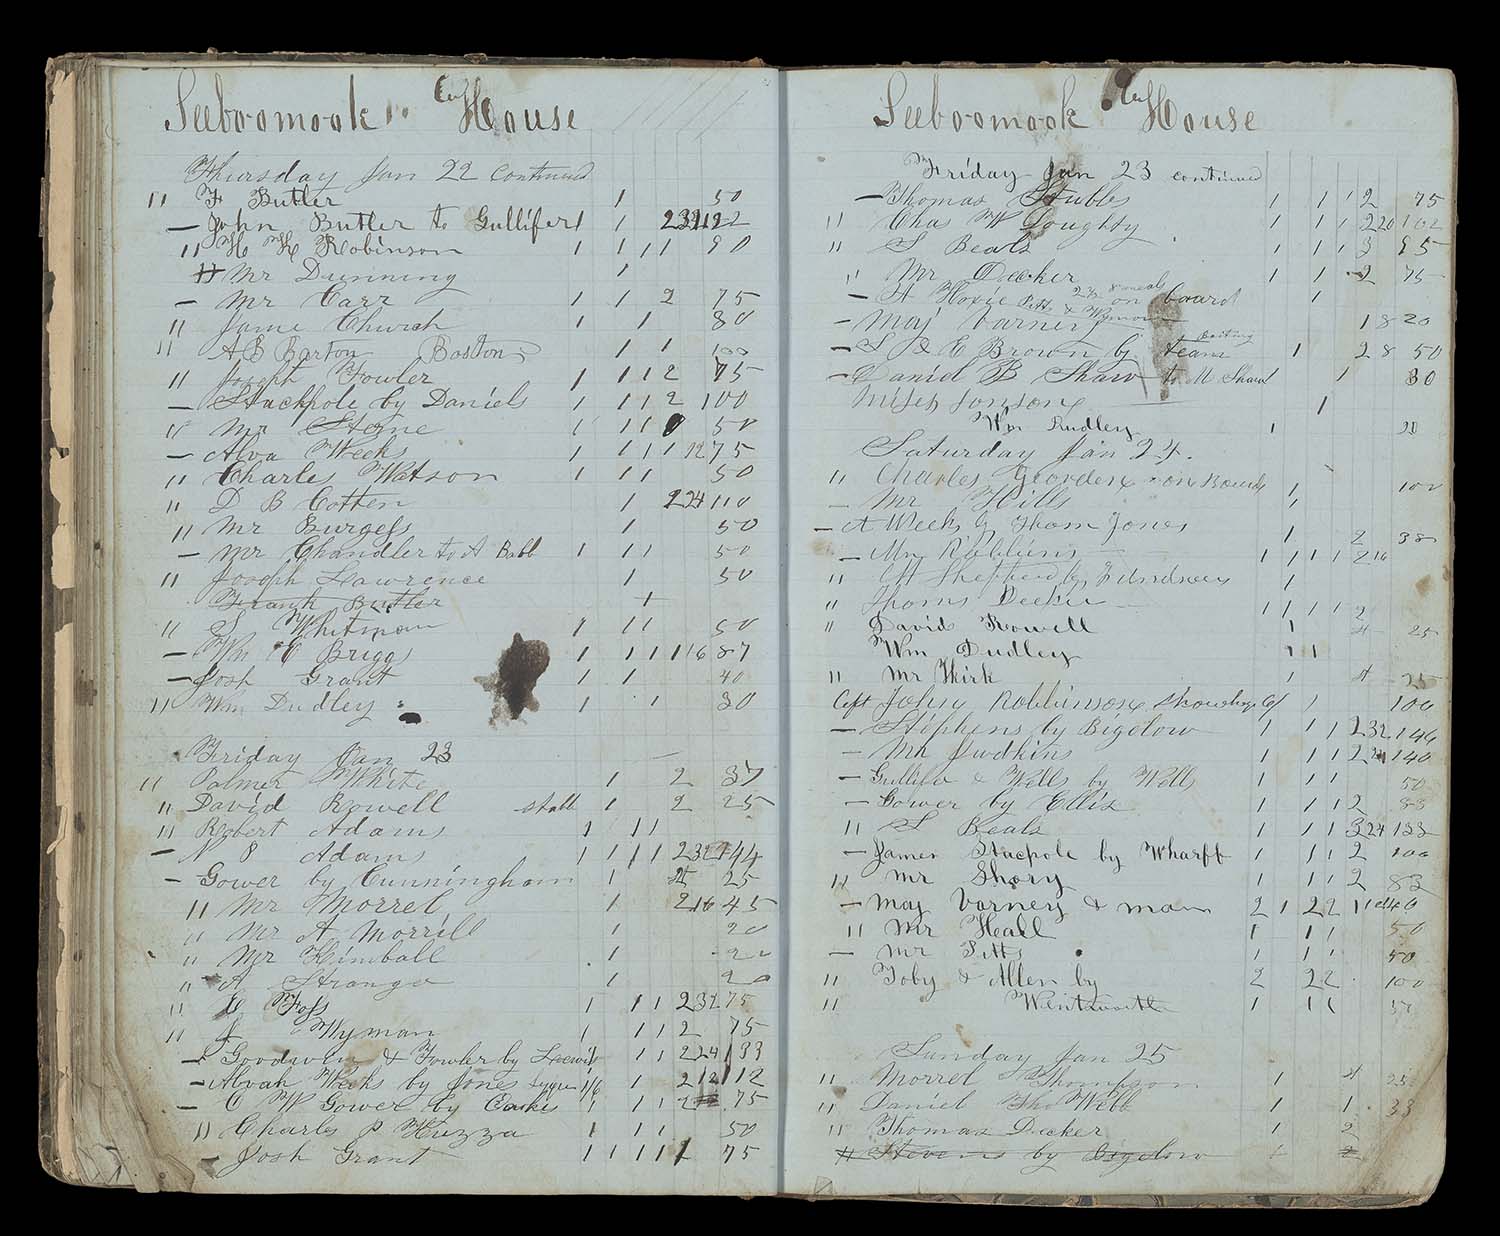 Seeboomook House
Thursday Jan 22 Continued
" F Butler 1 50
— John Butler to Gullifer 1 1
" H H Robinson 1 1 1 1 90
Mr Dunning 1
— Mr Carr 1 1 2 75
" Jame Church 1 1 80
" A B Barton Boston 1 1 100
" Joseph Fowler 1 1 1 2 75
— Stackpole by Daniels 1 1 1 2 100
" Mr Stone 1 1 1 50
— Alva Weeks 1 1 1 1 12 75
" Charles Watson 1 1 1 50
" D B Cotten 1 2 24 110
" Mr Burgess 1 50
— Mr Chandler to A Babb 1 1 1 50
" Joseph Lawrence 1 50
Frank Butler
" S Whitman 1 1 1 50
— Wm C Briggs 1 1 1 1 16 87
— Josh Grant 1 1 40
" Wm Dudley 1 1 30
Friday Jan 23
" Palmer White 1 2 37
" David Rowell stall 1 2 25
" Robert Adams 1 1 1
— N 8 Adams 1 1 1 1 2 32 144
— Gower by Cunningham 1 25
" Mr Morrel 1 2 16 45
" Mr A Morrill 1 20
" Mr Kimball 1 20
" A Strange 1 20
" Foss 1 1 1 2 32 75
" Wyman 1 1 1 2 75
— Goodwin & Fowler by 1 1 2 24 133
— Alvah Weeks by Jones 1 2 12 112
— C W Gower by 1 1 1 2 75
" Charles P Huzza 1 1 1 50
— Josh Grant 1 1 1 1 1 75
Seeboomook House
Friday Jan 23 continued
— Thomas Stubbs 1 1 1 2 75
" Chas W Doughty 1 1 1 2 20 102
" S Beals 1 1 1 3 95
" Mr Decker 1 1 2 75
— A Hoxie on board 1
Pitts & Wyman
— Maj Varney 1 8 20
— S & E Brown by team 1 2 8 50
— Daniel B Shaw to M Shaw 1 1 30
1
Wm Dudley 1 20
Saturday Jan 24.
" Charles on Board 1 100
— Mr Hills 1
— A Weeks by Thom Jones 1 2 38
— Mr Robbins 1 1 1 1 2 16
" Shepherd by 1
" Thoms Decker 1 1 1 1 2
" David Rowell 1 25
Wm Dudley 1 1
" Mr Kirk 1 25
Capt John Robbinson 1 100
— Stephens by Bigelow 1 1 1 2 32 146
— Mr Judkins 1 1 1 2 140
— Gullifer & Wells by Wells 1 1 1 50
— Gower by Ellis 1 1 1 2 83
" S Beals 1 1 1 3 24 133
— James Stacpole by Wharff 1 1 1 2 100
" Mr Shory 1 1 1 2 83
— Maj Varney & man 2 1 2 2 1
" Mr Heall 1 1 1 50
— Mr Pitts 1 1 1 50
" Toby & Allen by 2 2 2 100
" Wentworth 1 1 1 50
Sunday Jan 25
" Morrel Thompson 1 25
" Daniel Webb 1 1 33
" Thomas Decker 1 2
Stevens by Bigelow